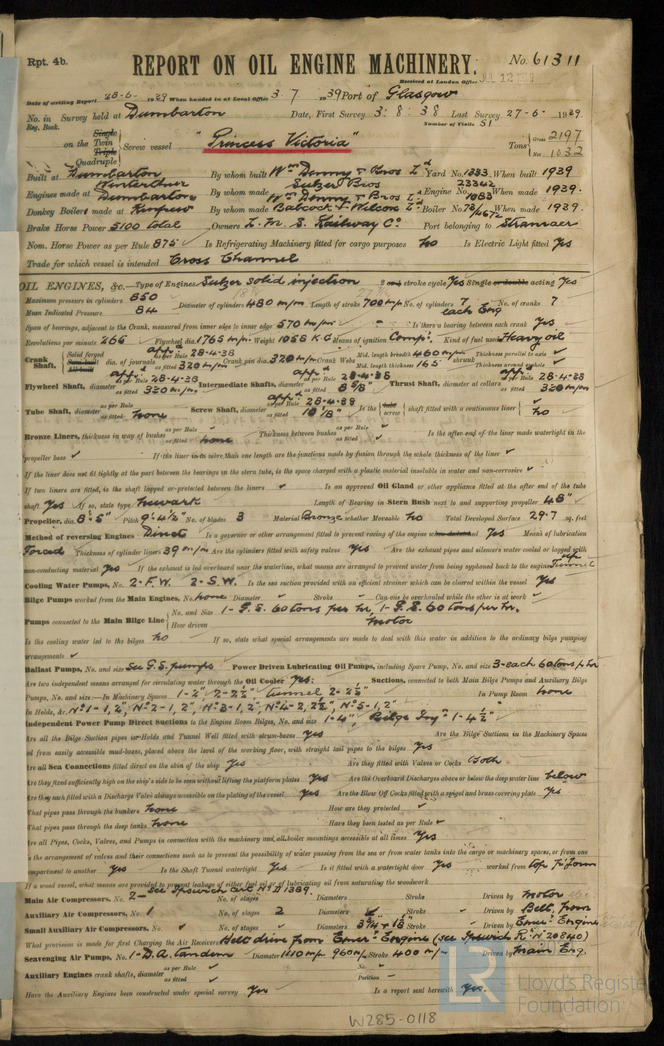 Rpt. 4b.
REPORT ON OIL ENGINE MACHINERY.
No. 61311
Received at London Office JUL 12 1939
Date of writing Report 28-6- 1939 When handed in at Local Office 3. 7 1939 Port of Glasgow
No. in Survey held at Dumbarton Date, First Survey 3: 8: 38 Last Survey 27-6- 1939.
Reg. Book. Number of Visits 51
on the Single Twin Triple Quadruple Screw vessel "Princess Victoria" Tons Gross 2197 Net 1032
Built at Dumbarton By whom built Wm Denny & Bros Ld Yard No. 1333 When built 1939
Engines made at Winterthur Dumbarton By whom made Sulzer Bros Wm Denny & Bros Ld Engine No. 23342 1083 When made 1939.
Donkey Boilers made at Renfrew By whom made Babcock & Wilcox Ld Boiler No. 73/4672 When made 1939.
Brake Horse Power 5100 total Owners L. M. S. Railway Co. Port belonging to Stranraer
Nom. Horse Power as per Rule 875 Is Refrigerating Machinery fitted for cargo purposes no Is Electric Light fitted yes
Trade for which vessel is intended Cross Channel
OIL ENGINES, &c. Type of Engines Sulzer solid injection 2 stroke cycle yes Single or double acting yes
Maximum pressure in cylinders 850 Diameter of cylinders 480 m/m Length of stroke 700 m/m No. of cylinders 7 each Eng No. of cranks 7
Mean Indicated Pressure 84
Span of bearings, adjacent to the Crank, measured from inner edge to inner edge 570 m/m Is there a bearing between each crank Yes
Revolutions per minute 266 Flywheel dia. 1765 m/m Weight 1058 KG Means of ignition Comp. Kind of fuel used Heavy oil
Crank Shaft, dia. of journals as per Rule app. 28-4-38 as fitted 320 m/m Crank pin dia. 320 m/m Crank Webs Mid. length breadth 460 m/m Mid. length thickness 165 shrunk Thickness parallel to axis Thickness around eyehole
Flywheel Shaft, diameter as per Rule app. 28-4-38 as fitted 320 m/m Intermediate Shafts, diameter as per Rule app. 28-4-38 as fitted 8 5/8" Thrust Shaft, diameter at collars as per Rule app. 28-4-38 as fitted 320 m/m
Tube Shaft, diameter as per Rule as fitted none Screw Shaft, diameter as per Rule app. 28-4-38 as fitted 10 1/8" Is the tube screw shaft fitted with a continuous liner no
Bronze Liners, thickness in way of bushes as per Rule as fitted none Thickness between bushes as per Rule as fitted Is the after end of the liner made watertight in the
propeller boss If the liner is in more than one length are the junctions made by fusion through the whole thickness of the liner
If the liner does not fit tightly at the part between the bearings in the stern tube, is the space charged with a plastic material insoluble in water and non-corrosive
If two liners are fitted, is the shaft lapped or protected between the liners Is an approved Oil Gland or other appliance fitted at the after end of the tube
shaft Yes If so, state type Newark Length of Bearing in Stern Bush next to and supporting propeller 48"
Propeller, dia. 8'-5" Pitch 9'-4½" No. of blades 3 Material Bronze whether Moveable no Total Developed Surface 29.7 sq. feet
Method of reversing Engines Direct Is a governor or other arrangement fitted to prevent racing of the engine when declutched Yes Means of lubrication
Forced Thickness of cylinder liners 39 m/m Are the cylinders fitted with safety valves Yes Are the exhaust pipes and silencers water cooled or lagged with
non-conducting material yes If the exhaust is led overboard near the waterline, what means are arranged to prevent water from being syphoned back to the engine up Funnel
Cooling Water Pumps, No. 2-F.W. 2-S.W. Is the sea suction provided with an efficient strainer which can be cleared within the vessel Yes
Bilge Pumps worked from the Main Engines, No. none Diameter Stroke Can one be overhauled while the other is at work
Pumps connected to the Main Bilge Line No. and Size 1-G.S. 60 tons per hr, 1-G.S. 60 tons per hr.
How driven motor
Is the cooling water led to the bilges no If so, state what special arrangements are made to deal with this water in addition to the ordinary bilge pumping
arrangements
Ballast Pumps, No. and size See G.S. pumps Power Driven Lubricating Oil Pumps, including Spare Pump, No. and size 3-each 60 tons p hr
Are two independent means arranged for circulating water through the Oil Cooler Yes. Suctions, connected to both Main Bilge Pumps and Auxiliary Bilge
Pumps, No. and size:—In Machinery Spaces 1-2", 2-2½", tunnel 2-2½" In Pump Room none
In Holds, &c. No1-1,2", No2-1,2", No3-1,2", No4-2,2½", No5-1,2"
Independent Power Pump Direct Suctions to the Engine Room Bilges, No. and size 1-4", Bilge Inj. 1-4½"
Are all the Bilge Suction pipes in Holds and Tunnel Well fitted with strum-boxes yes Are the Bilge Suctions in the Machinery Spaces
led from easily accessible mud-boxes, placed above the level of the working floor, with straight tail pipes to the bilges yes
Are all Sea Connections fitted direct on the skin of the ship Yes Are they fitted with Valves or Cocks Both
Are they fixed sufficiently high on the ship's side to be seen without lifting the platform plates Yes Are the Overboard Discharges above or below the deep water line below
Are they each fitted with a Discharge Valve always accessible on the plating of the vessel Yes Are the Blow Off Cocks fitted with a spigot and brass covering plate Yes
What pipes pass through the bunkers none How are they protected
What pipes pass through the deep tanks none Have they been tested as per Rule
Are all Pipes, Cocks, Valves, and Pumps in connection with the machinery and all boiler mountings accessible at all times Yes
Is the arrangement of valves and their connections such as to prevent the possibility of water passing from the sea or from water tanks into the cargo or machinery spaces, or from one
compartment to another Yes Is the Shaft Tunnel watertight Yes Is it fitted with a watertight door Yes worked from top Pl'form
If a wood vessel, what means are provided to prevent leakage of either fuel oil or lubricating oil from saturating the woodwork
Main Air Compressors, No. 2- See Ipswich No. of stages Diameters Stroke Driven by motor
Auxiliary Air Compressors, No. 1 No. of stages 2 Diameters Stroke Driven by Belt, from
Small Auxiliary Air Compressors, No. No. of stages Diameters Stroke Driven by Emer. Engine
What provision is made for first Charging the Air Receivers Belt drive from Emer. Engine (see Ipswich R. No 20840)
Scavenging Air Pumps, No. 1-D.A. tandem Diameter 1110 m/m 960 m/m Stroke 400 m/m Driven by main Eng.
Auxiliary Engines crank shafts, diameter as per Rule as fitted No. Position
Have the Auxiliary Engines been constructed under special survey Yes Is a report sent herewith Yes.
LR
Lloyd's Register
Foundation
W285-0118